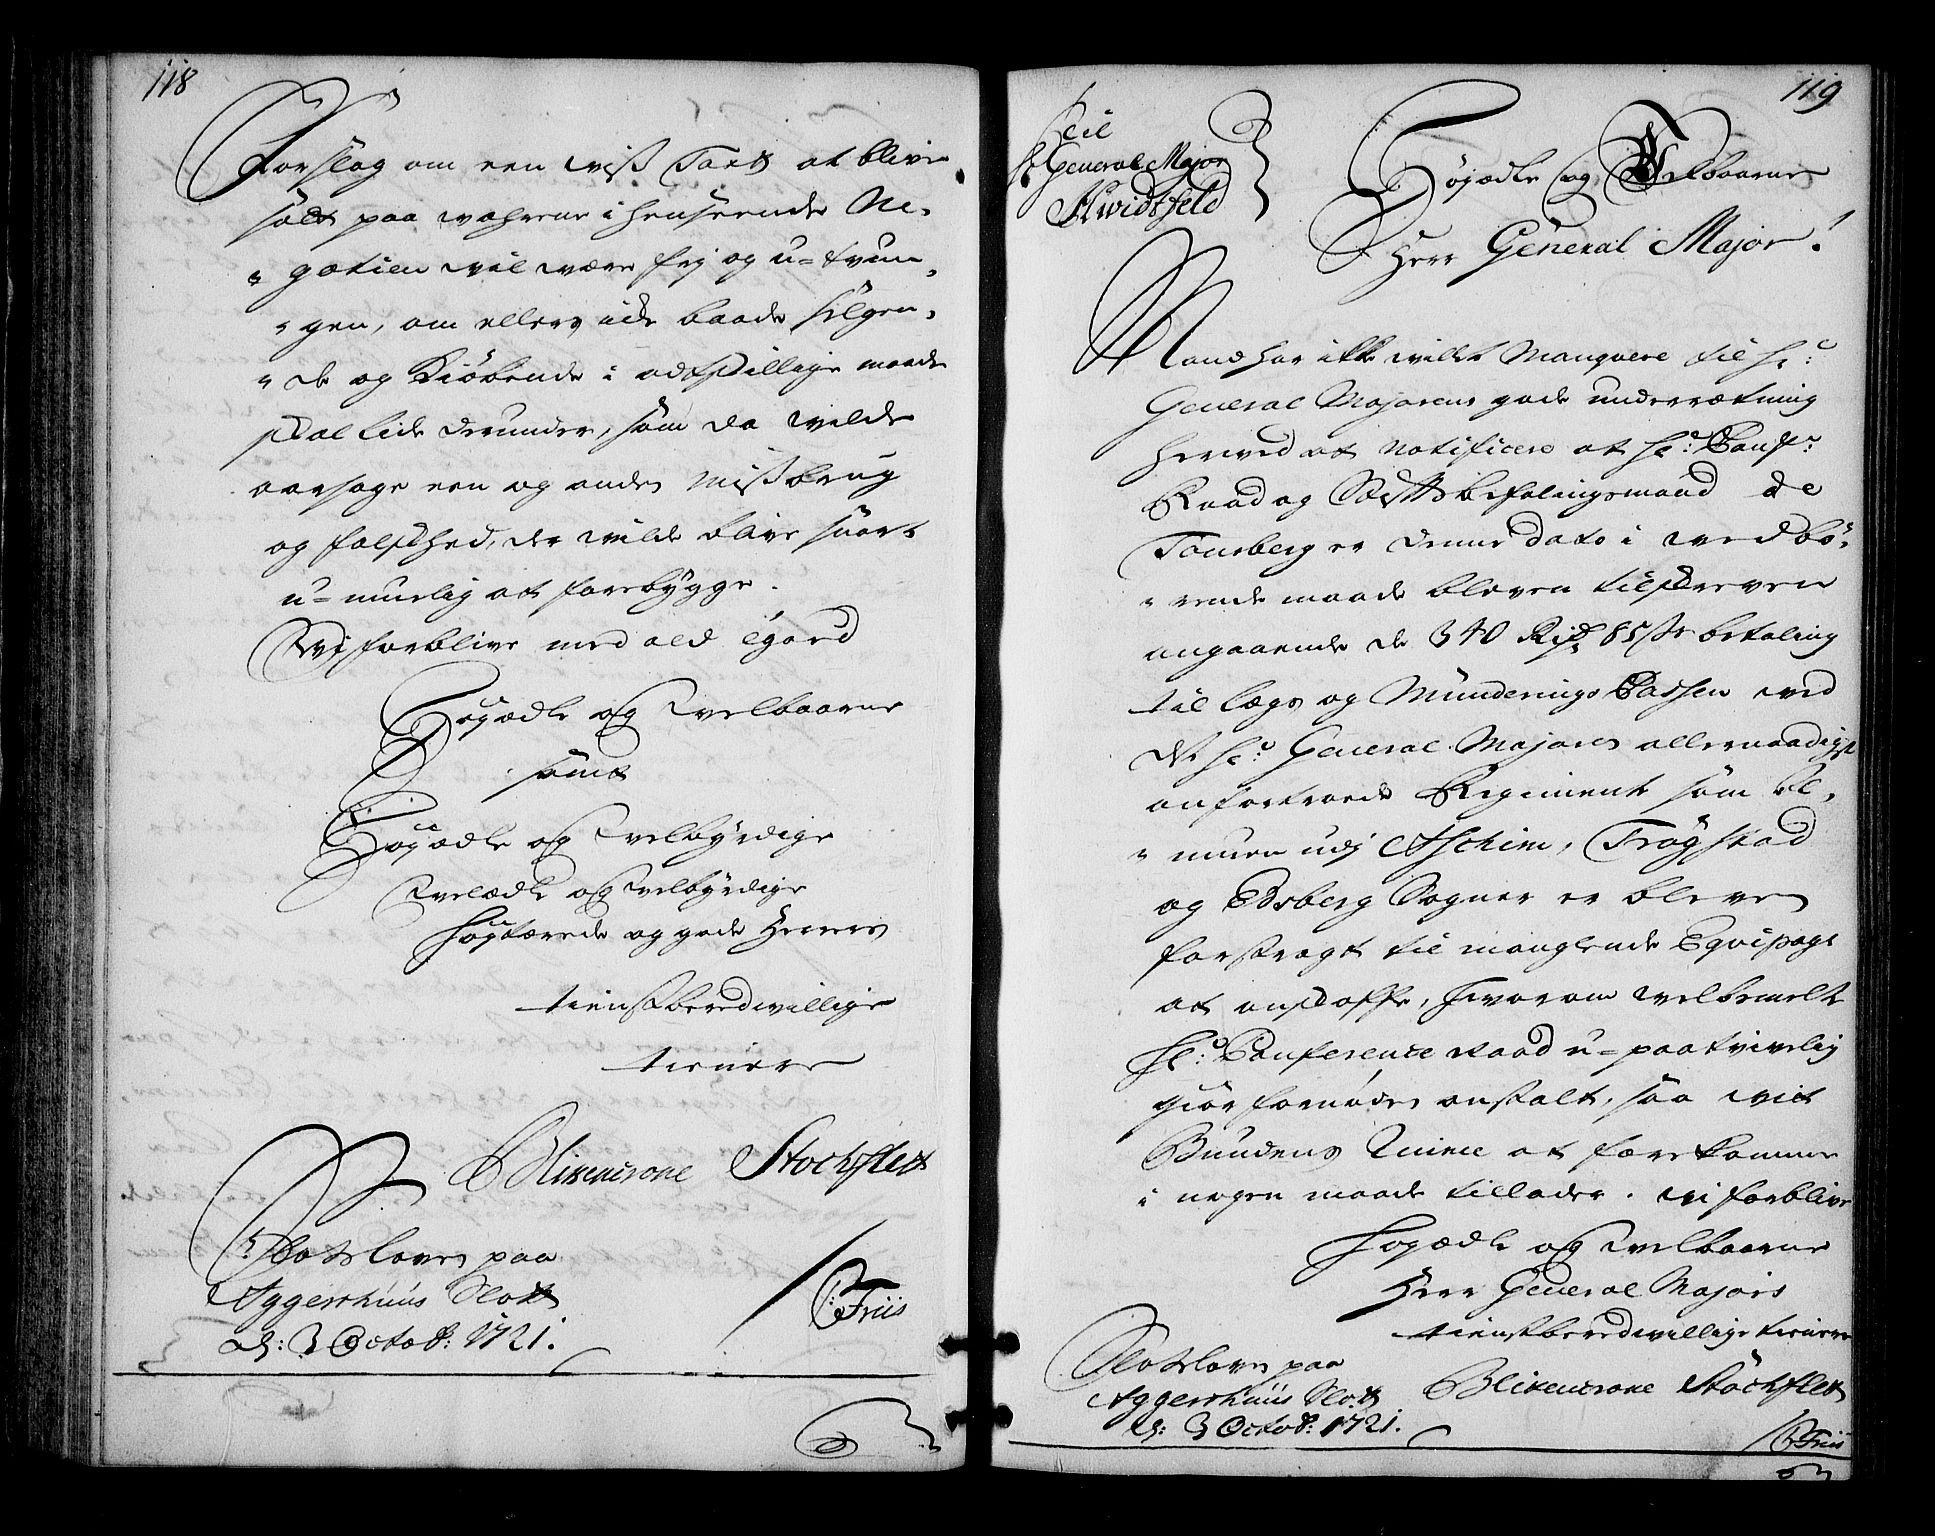 118
Forslag om een wiß Taxt at blive
satt paa wahrene i henseende Ne-
gotien vil være frj og u-tvun-
gen, om ellers icke baade selgen-
de og Kiøbende i adskillige maade
skal lide derunder, som da wilde
aarsage een og anden Mißbrug
og falskhed, der wilde blive snart
u-muelig at forebygge.
Wi forblive med ald Egard
Høyædle og Velbaarne
samt
Høyædle og Velbyrdige
Velædle og Velbyrdige
høytærede og gode Herrers
tienstberedwillige
tienere
Blixencrone Stochfleth
Slotsloven paa
Aggershuus Slott
d: 3 Octob: 1721.
/: Friis
119
Til
Hr General Major
Hwidtfeld
Høyædle og Velbaarne
Herr General Major!
Mand har icke willet Manqvere til Hr:
General Majorens gode underrætning
herved at notificere at Hr: Conf:
Raad og Stiftsbefalingsmand de
Tonsberg er denne dato i vedbø-
rende maade bleven tilskreven
angaaende de 340 Rdr 85 s betaling
til lægs og Munderings Cassen ved
det Hr: General Majoren allernaadigst
anfortroede Regiment som Al-
muen udj Aschim, Trögstad
og Edsberg Sogner er bleven
forstragt til manglende Eqvipage
at anskaffe, hvorom velbemelte
Hr: Conference Raad u-paatvivelig
giør fornøden anstalt, saa vit
Bundens Ruine at forekomme
i nogen maade tillader. wi forblive
Høyædle og Velbaarne
Herr General Majors
tienstberedwillige tienere
Slotsloven paa
Aggershuus Slott
d: 3 Octob: 1721.
Blixencrone Stochfleth
/: Friis